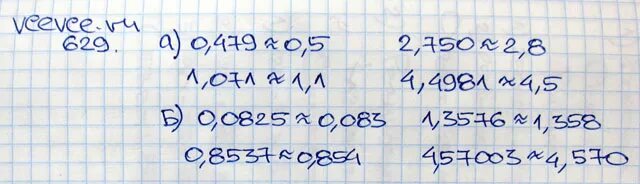 veevee.ru
629. а) 0,479≈0,5 2,750≈2,8
1,071≈1,1 4,4981≈4,5
Б) 0,0825≈0,083 1,3576≈1,358
0,8537≈0,854 4,57003≈4,570